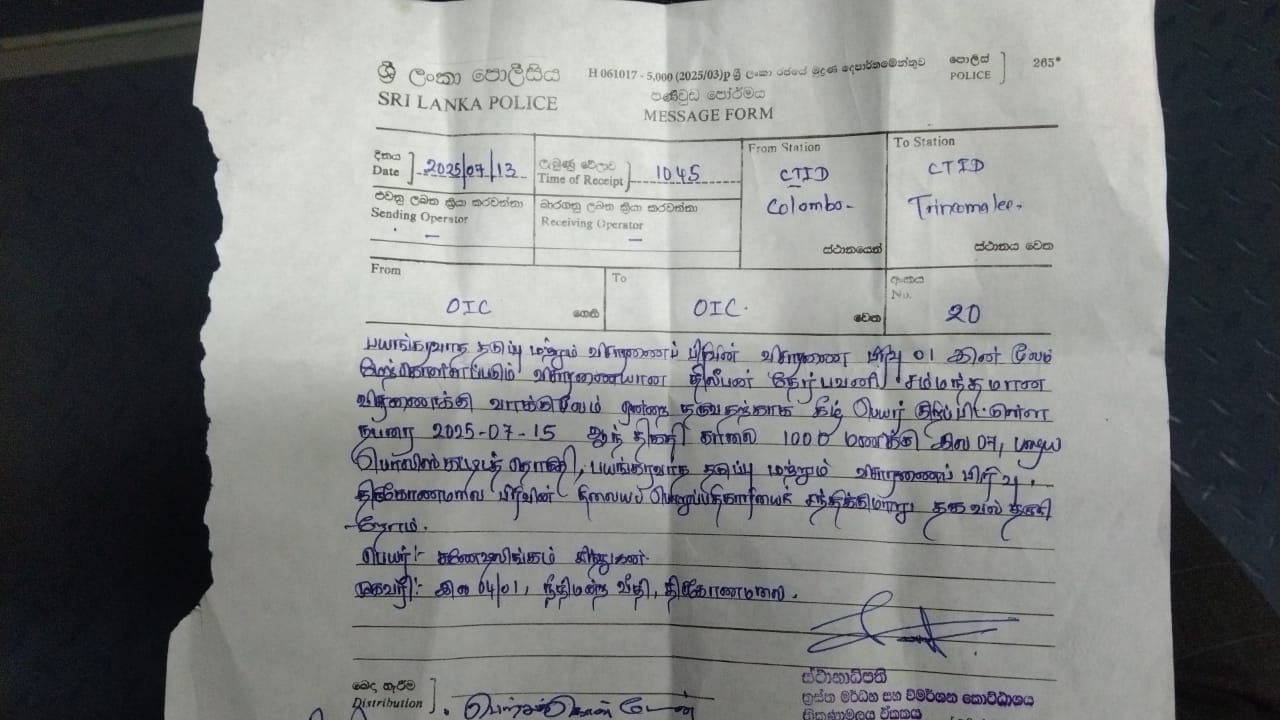 ශ්‍රී ලංකා පොලීසිය
SRI LANKA POLICE
H 061017 - 5,000 (2025/03)p ශ්‍රී ලංකා රජයේ මුද්‍රණ දෙපාර්තමේන්තුව
පණිවුඩ පෝර්මය
MESSAGE FORM
පොලිස්
POLICE
265*
දිනය
Date
2025/07/13
ලැබුණු වේලාව
Time of Receipt
1045
From Station
CTID
Colombo-
ස්ථානයෙන්
To Station
CTID
Trincomalee,
ස්ථානය වෙත
එවනු ලබන ක්‍රියා කරවන්නා
Sending Operator
භාරගනු ලබන ක්‍රියා කරවන්නා
Receiving Operator
From
OIC
ගෙනි
To
OIC.
වෙත
අංකය
No.
20
பயங்கரவாத தடுப்பு மற்றும் விசாரணைப் பிரிவின் விசாரணை பிரிவு 01 கின்
விசாரணையான திலீபன் தேர்பவனி சம்மந்தமான
விசாரணைக்கு வாக்குமூலம் ஒன்றை தருவதற்காக கீழ் பெயர் குறிப்பிட்டுள்ள
நபரை 2025-07-15 ஆந் திகதி காலை 1000 மணிக்கு இல 07, பழைய
பொலிஸ் கட்டிடத் தொகுதி, பயங்கரவாத தடுப்பு மற்றும் விசாரணைப் பிரிவு,
திருகோணமலை பிரிவின் நிலையப் பொறுப்பதிகாரியைச் சந்திக்குமாறு தகவல் தருகி
-றோம்.
பெயர்:- கணேஸலிங்கம் சிந்துஜன்.
முகவரி:- இல 04/01, நீதிமன்ற வீதி, திருகோணமலை.
බෙදා හැරීම
Distribution
ස්ථානාධිපති
ත්‍රස්ත මර්ධන සහ විමර්ශන කොට්ඨාශය
ත්‍රිකුණාමලය ඒකකය